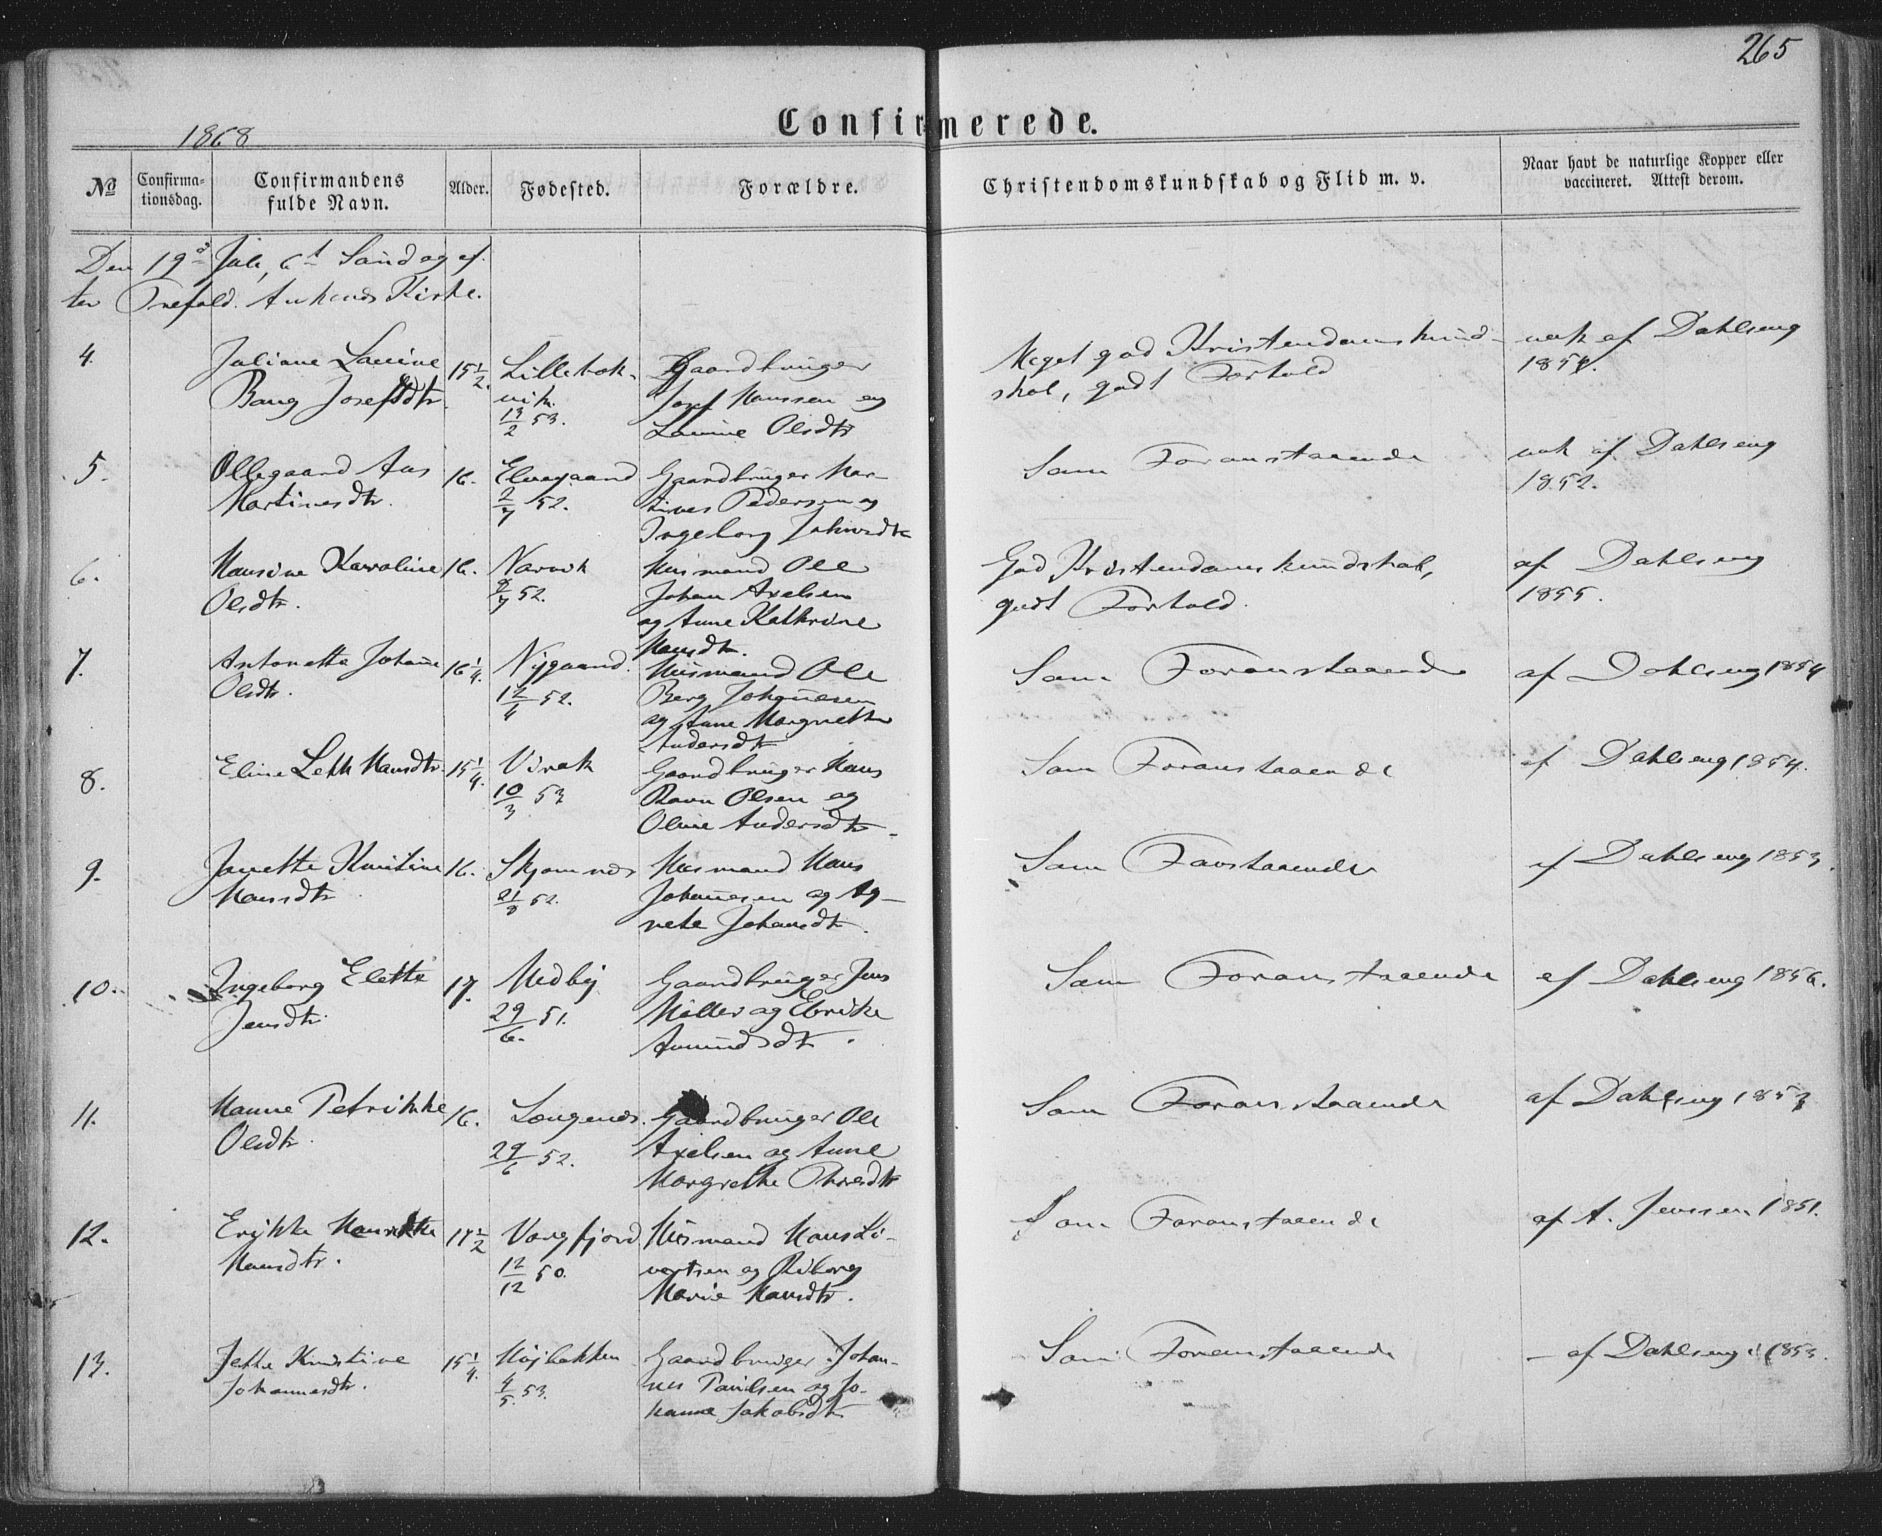 265
Confirmerede.
1868
No
Confirma-
tionsdag.
Confirmandens
fulde Navn.
Alder.
Fødested.
Forældre.
Christendomskundskab og Flid m. v.
Naar havt de naturlige Kopper eller
vaccineret. Attest derom.
Den 19d Juli, 6t Søndag ef-
ter Trefold. Ankenes Kirke.
4.
Juliane Lavine
Bang Josefsdtr.
15 1/2.
Lillebok-
vik.
13/2 53.
Gaardbruger
Josef Hanssen og
Lavine Olsdtr
Meget god Kristendomskund-
skab, godt Forhold
vak af Dahlseng
1854.
5.
Ollegaard Aas
Martinesdtr.
16.
Elvegaard
2/7 52.
Gaardbruger Mar-
tines Pedersen og
Ingeborg
Som Foranstaaende
vak af Dahlseng
1852.
6.
Hansine Karoline
Olsdtr.
16.
Narvik
9/7 52.
Husmand Ole
Johan Axelsen
og Anne Kathrine
Hansdtr.
God Kristendomskundskab,
godt Forhold.
af Dahlseng
1855.
7.
Antonette Johanne
Olsdtr.
16 1/4.
Nygaard.
12/4 52.
Husmand Ole
Berg Johannesen
og Anne Margrethe
Andersdtr
Som Foranstaaende
af Dahlseng 1854
8.
Eline Leth Hansdtr.
15 1/4.
Virak
10/3 53
Gaardbruger Hans
Ravn Olsen og
Oline Andersdtr.
Som Foranstaaende
af Dahlseng 1854.
9.
Janette Kristine
Hansdtr
16.
Skjomnes
21/8 52.
Husmand Hans
Johannesen og Ag-
nete Johansdtr.
Som Forstaaende
af Dahlseng 1853.
10.
Ingeborg Elette
Jensdtr.
17.
Medby
29/6. 51.
Gaardbruger Jens
Möller og Elrike
Amundsdtr.
Som Foranstaaende
af Dahlseng 1856.
11.
Hanne Petrikke
Olsdtr.
16.
Longenes.
29/6 52.
Gaardbruger Ole
Axelsen og Anne
Margrethe
Som Foranstaaende
af Dahlseng 1853
12.
Erikke Henrikke
Hansdtr.
17 1/2
Vargfjord
12/12 50.
Husmand Hans Si-
vertsen og Riborg
Marie Hansdtr.
Som Foranstaaende
af A. Jenssen 1851.
13.
Jette Kristine
Johannesdtr.
15 1/4.
Højbakken
4/5. 53.
Gaardbruger Johan-
nes Paulsen og Jo-
hanne Jakobsdtr
Som Foranstaaende
af Dahlseng i 1853.